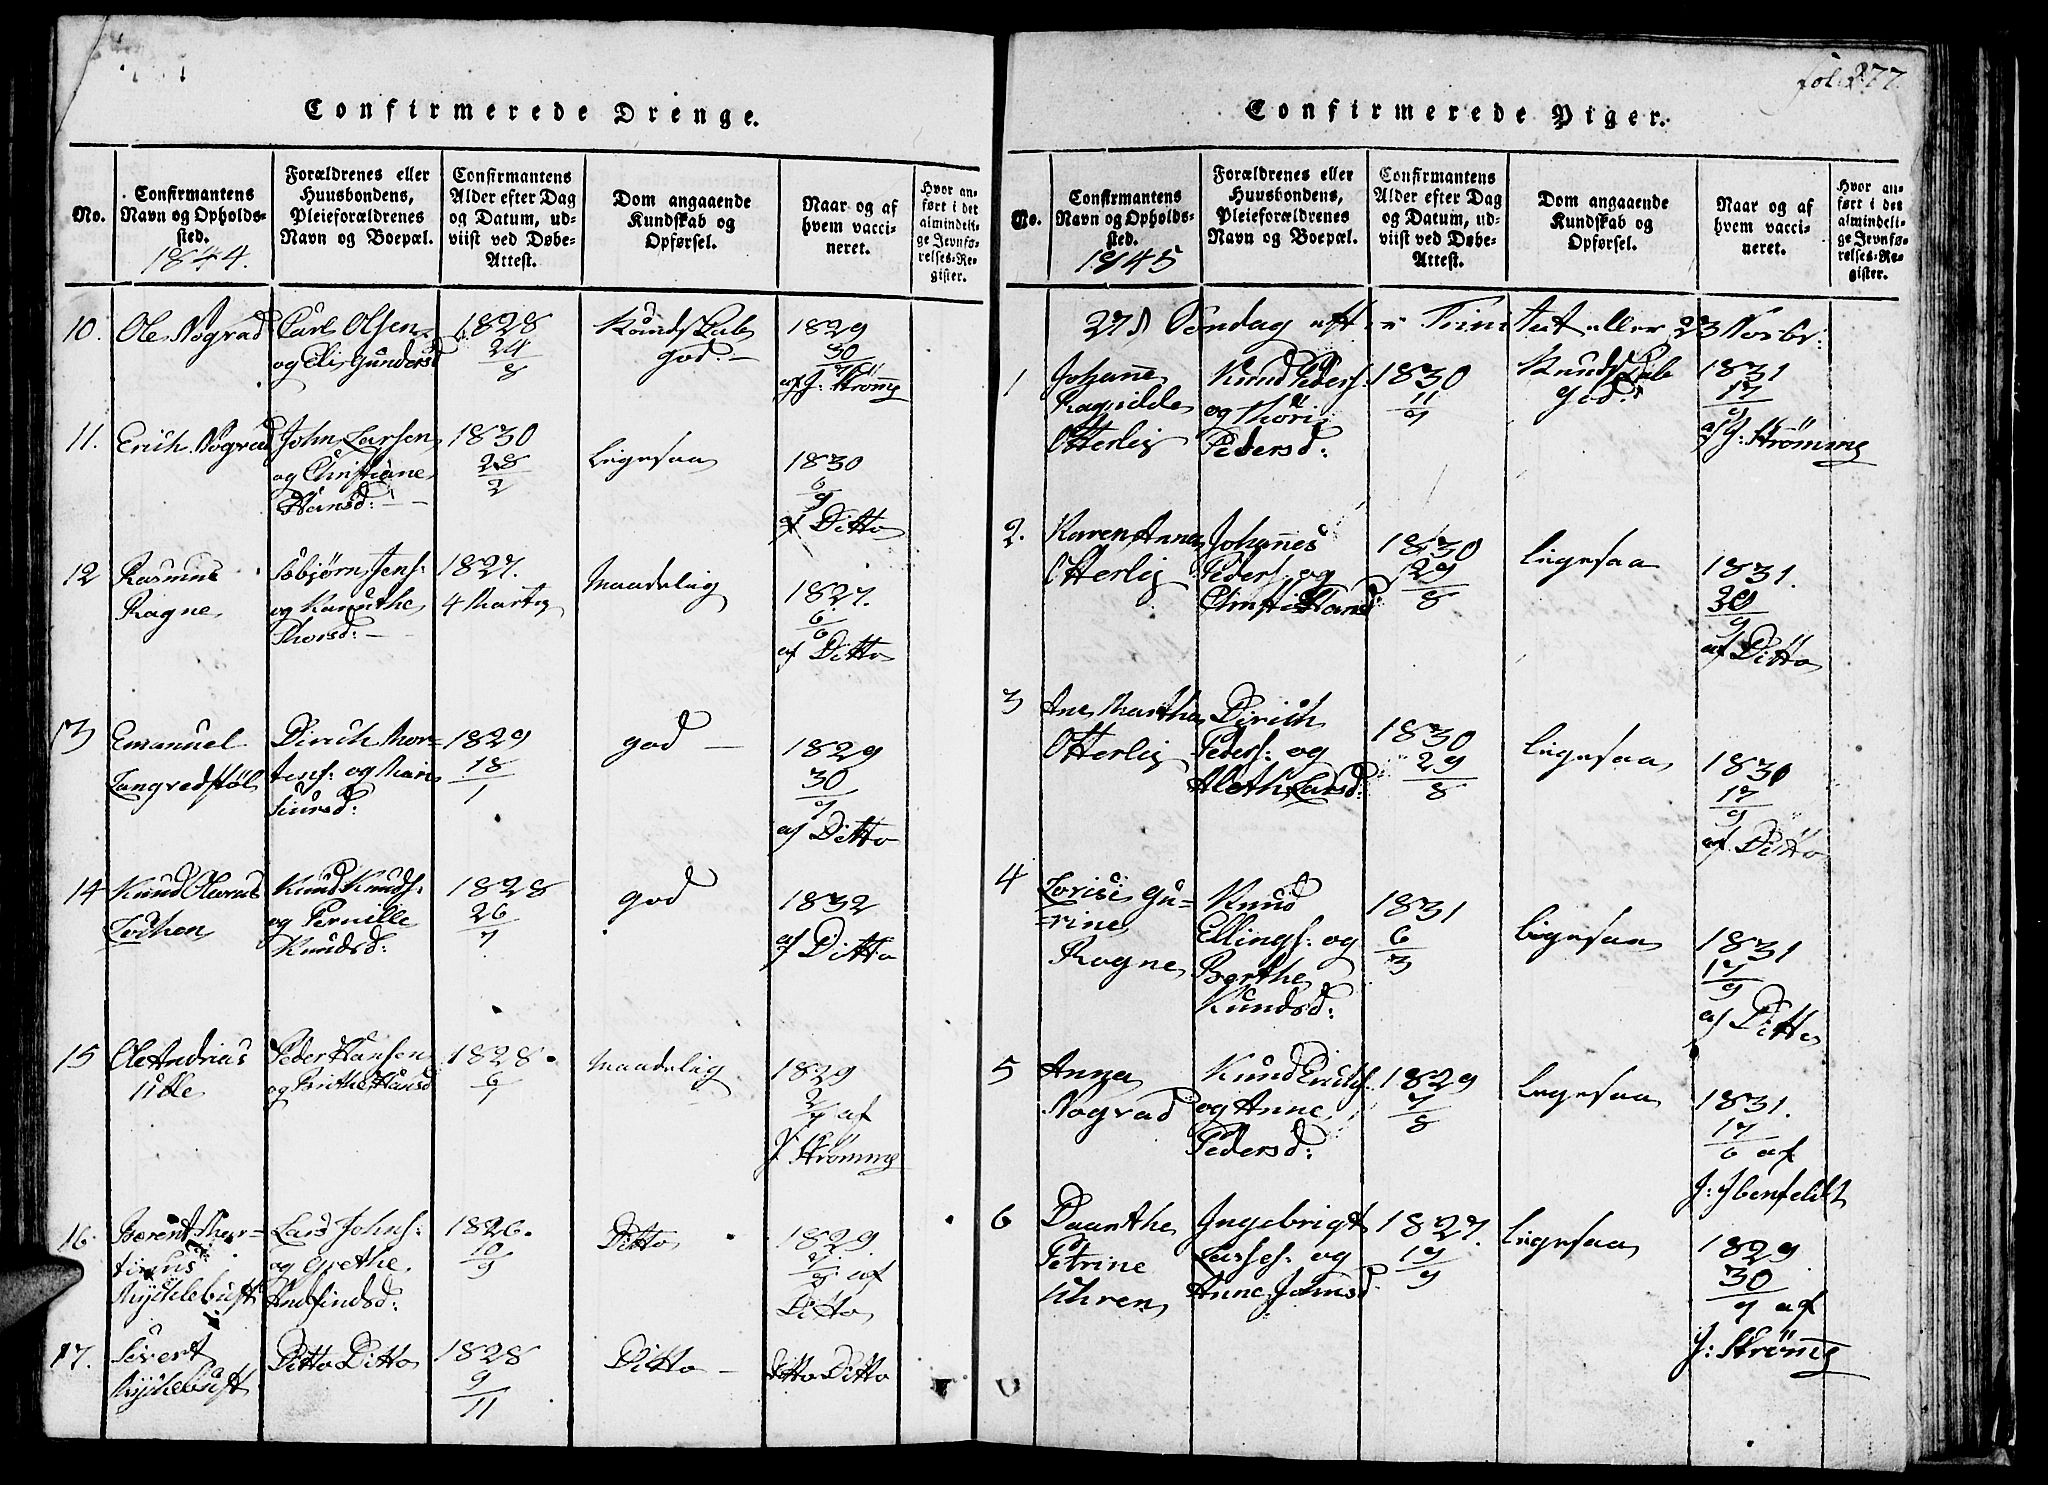 Confirmerede Drenge.
No.
Confirmantens
Navn og Opholds-
sted.
1844.
Forældrenes eller
Huusbondens,
Pleieforældrenes
Navn og Boepæl.
Confirmantens
Alder efter Dag
og Datum, ud-
viist ved Døbe-
Attest.
Dom angaaende
Kundskab og
Opførsel.
Naar og af
hvem vacci-
neret.
Hvor an-
ført i det
almindeli-
ge Jevnfø-
relses-Re-
gister.
10. Ole Nograd
Carl Olsen
og Elis Gundersd
1828
24
8
Kundskab
god. -
1829
30
9
af J: Strømmg
11. Erich Nograd
John Larsen
og Christiane
Hansd: -
1830
28
2
ligesaa
1830
6
9
af Ditto
12 Rasmus
Ragne
Esbjørn Jens:
og Kanuthe
Thorsd: -
1827.
4 Martz
Maadelig
1827.
6
6
af Ditto
13 Emanuel
Langvedstøl
Dirich Mor-
tens: og Mari
Siursd:
1829
18
1
god -
1829
30
9
af Ditto
14 Knud Olerus
Knud Knuds:
og Pernille
Knudsd:
1828
26
7
god
1832
af Ditto
15 Ole Andrias
Utle
Peder Hansen
og Brithe Hansd
1828.
6
7
Maadelig
1829
2
7 af
J: Strømmg
16. Berent Mar-
tinus
Mychlebust
Lars Johns:
og Grethe
Andfindsd:
1826.
10
9
Ditto
1829.
af
Ditto
17. Sivert
Mychlebust
Ditto Ditto
1828
9
11
Ditto -
Ditto Ditto
fol: 277.
Confirmerede Piger.
No.
Confirmantens
Navn og Opholds-
sted.
1845
Forældrenes eller
Huusbondens,
Pleieforældrenes
Navn og Boepæl.
Confirmantens
Alder efter Dag
og Datum, ud-
viist ved Døbe-
Attest.
Dom angaaende
Kundskab og
Opførsel.
Naar og af
hvem vacci-
neret.
Hvor an-
ført i det
almindeli-
ge Jevnfø-
relses-Re-
gister.
27d Søndag efter Trinitat eller 23 Novbr:
1 Johanne
Ragnilde
Otterlig
Knud Peders:
og Thori
Pedersd:
1830
11
9
Kundskab
god.
1831
17
9
af J: Strømmg
2. Karen Anna
Otterlig
Johannes
Peders: og
Christi Hansd
1830
29
8
ligesaa
1831.
30
9
af Ditto
3 Ane Marthe
Otterlig
Dirich
Peders: og
Aleth Larsd:
1830
29
8
ligesaa
1830
17
9
af Ditto
4 Lovise Gu-
rine
Ragne
Knud
Ellings: og
Berthe
Knudsd:
1831
6
3
ligesaa
1831
17
9
af Ditto
5 Anna
Nograd
Knud Erichs:
og Anne
Pedersd:
1829
7
8
ligesaa
1831.
17
6 af
J: Ibenfeldt
6 Daarthe
Petrine
Uhren
Ingebrigt
Larses: og
Anne Johnsd
1827.
17
9
ligesaa
1829
30
9 af
J: Strømg